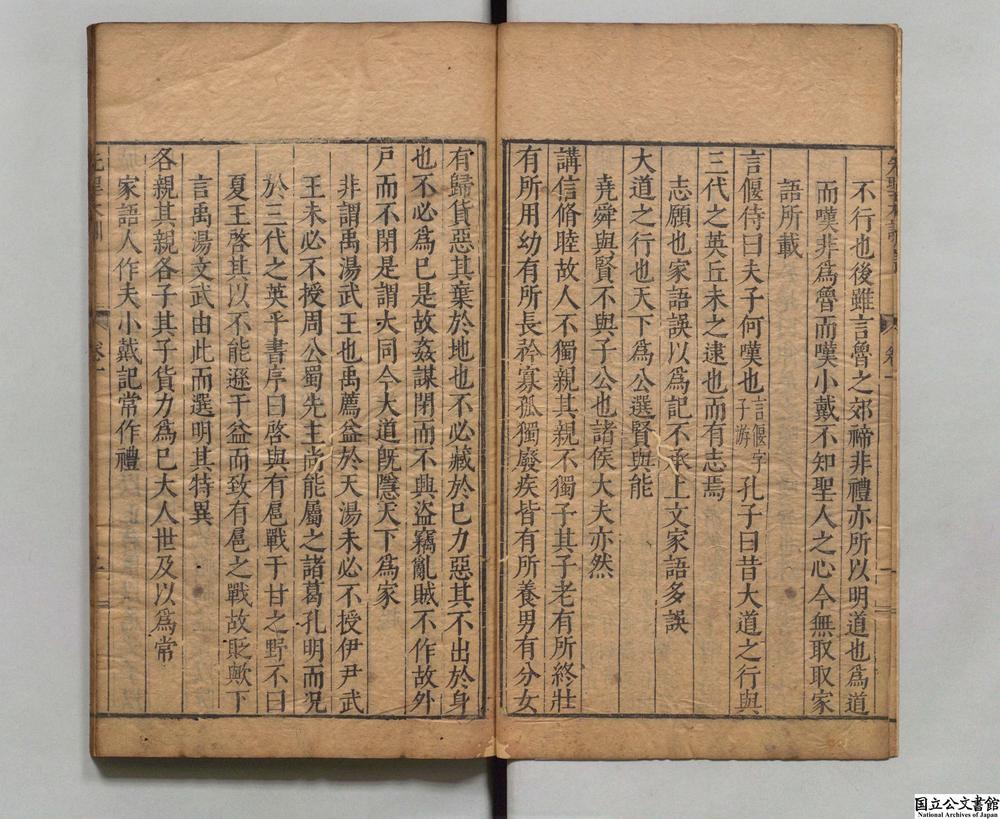 不行也後雖言魯之郊禘非禮亦所以明道也爲道
而嘆非爲魯而嘆小戴不知聖人之心今無取取家
語所載
言偃侍曰夫子何嘆也言偃字子游孔子曰昔大道之行與
三代之英丘未之逮也而有志焉
志願也家語誤以爲記不承上文家語多誤
大道之行也天下爲公選賢與能
堯舜與賢不與子公也諸侯大夫亦然
講信脩睦故人不獨親其親不獨子其子老有所終壯
有所用幼有所長矜寡孤獨廢疾皆有所養男有分女
有歸貨惡其棄於地也不必藏於已力惡其不出於身
也不必爲已是故姦謀閉而不興盜竊亂賊不作故外
戸而不閉是謂大同今大道旣隱天下爲家
非謂禹湯武王也禹薦益於天湯未必不授伊尹武
王未必不授周公蜀先主尚能屬之諸葛孔明而况
於三代之英乎書序曰啓與有扈戰于甘之野不曰
夏王啓其以不能遜于益而致有扈之戰故貶歟下
言禹湯文武由此而選明其特異
各親其親各子其子貨力爲已大人世及以爲常
家語人作夫小戴記常作禮
卷一
一
卷一
二
国立公文書館
National Archives of Japan